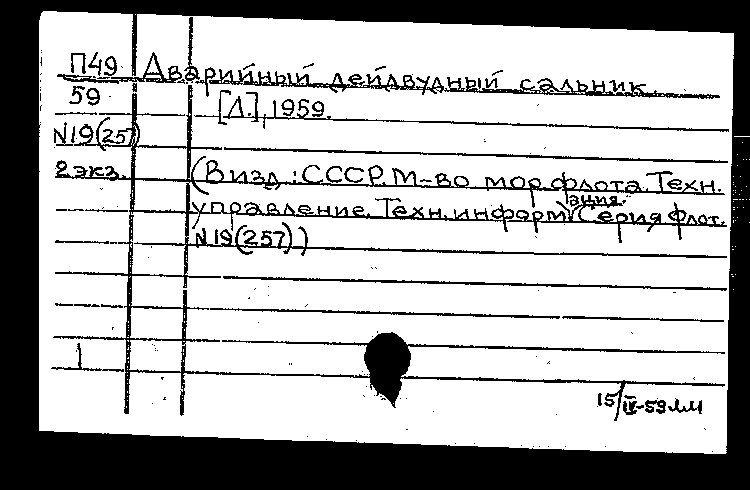 П49 Аварийный дейдвудный сальник.
59 [Л.], 1959.
N19(257)
2 экз. (В изд.: СССР. М-во мор. флота. Техн.
управление. Техн. информация. Серия флот.
N19(257))
1
15/IX-59